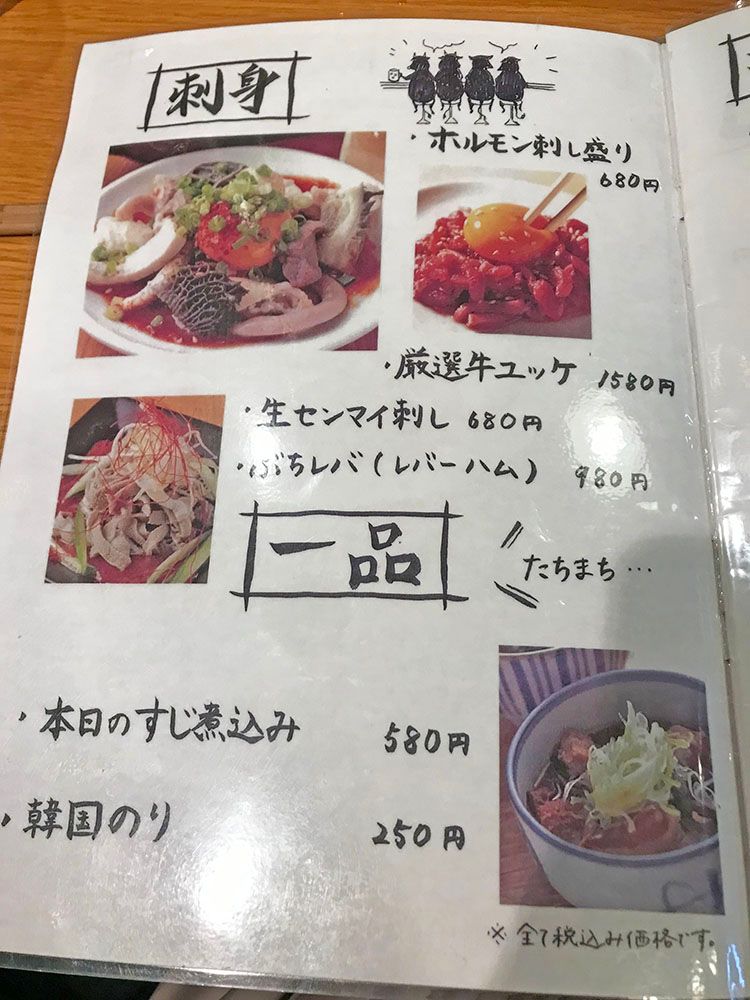 刺身
・ホルモン刺し盛り
680円
・厳選牛ユッケ 1580円
・生センマイ刺し 680円
・ぶちレバ(レバーハム) 980円
一品
たちまち…
・本日のすじ煮込み 580円
・韓国のり 250円
※全て税込み価格です。